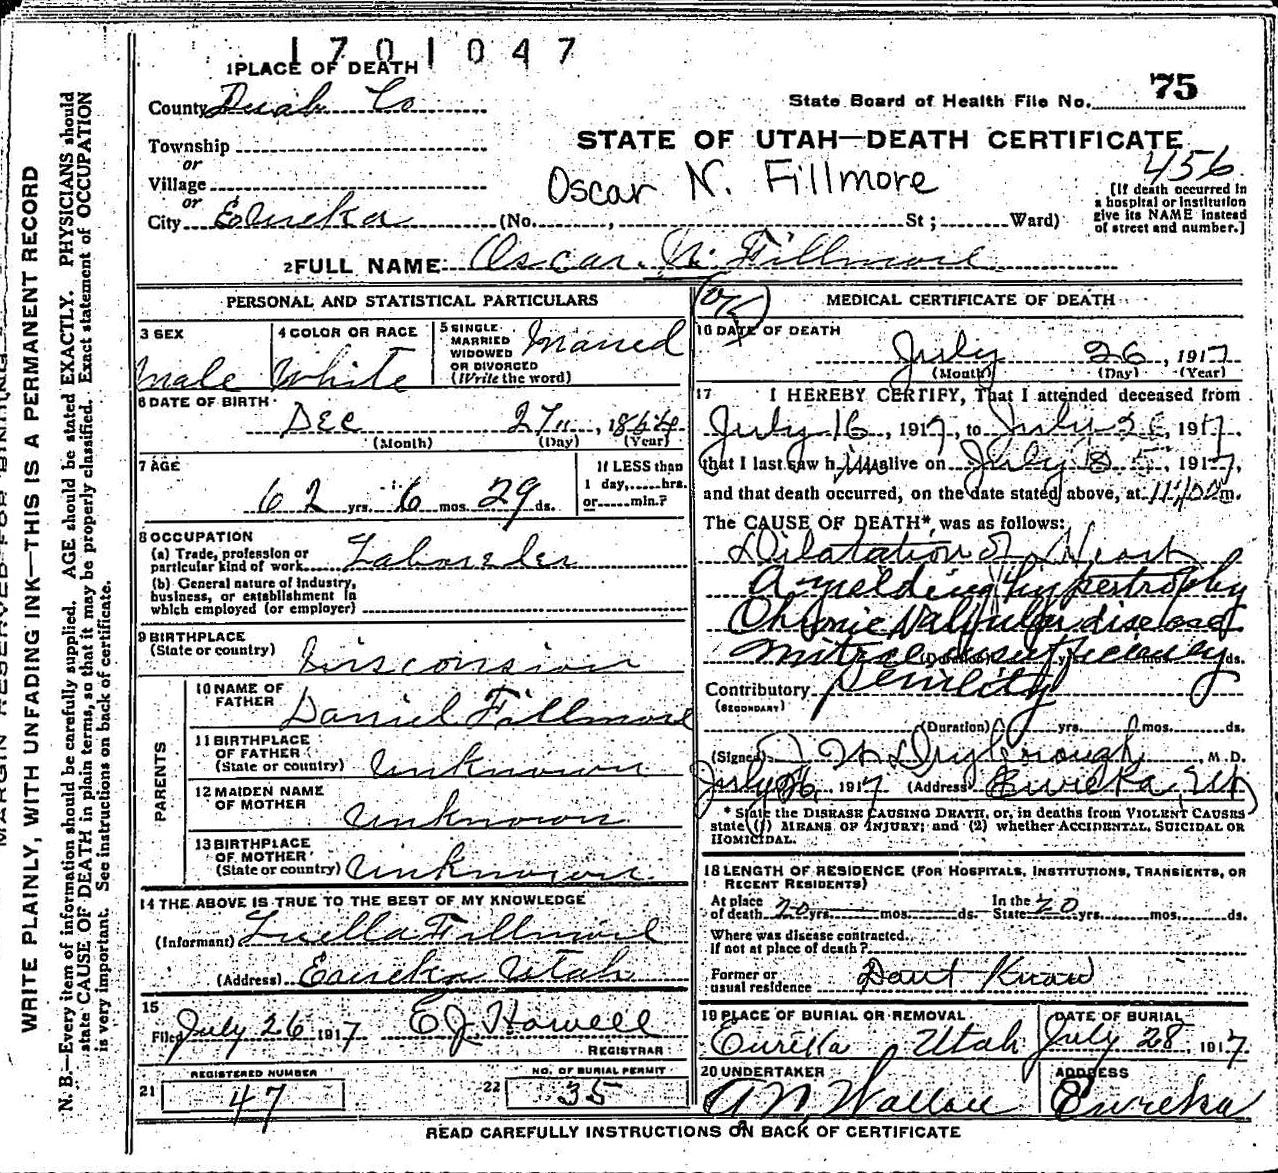 1701047
1 PLACE OF DEATH
County Juab Co
75
State Board of Health File No.
STATE OF UTAH—DEATH CERTIFICATE
Township
or
Village
or
City Eureka (No. , St; Ward)
Oscar N. Fillmore
456
[If death occurred in
a hospital or institution
give its NAME instead
of street and number.]
2 FULL NAME Oscar N. Fillmore
PERSONAL AND STATISTICAL PARTICULARS
3 SEX
Male
4 COLOR OR RACE
White
5 SINGLE
MARRIED
WIDOWED
OR DIVORCED
(Write the word)
Married
6 DATE OF BIRTH
Dec 27 , 1864
(Month) (Day) (Year)
7 AGE
62 yrs. 6 mos. 29 ds.
If LESS than
1 day,.....hrs.
or.....min.?
8 OCCUPATION
(a) Trade, profession or
particular kind of work
(b) General nature of industry,
business, or establishment in
which employed (or employer)
9 BIRTHPLACE
(State or country)
PARENTS
10 NAME OF
FATHER
Daniel Fillmore
11 BIRTHPLACE
OF FATHER
(State or country) Unknown
12 MAIDEN NAME
OF MOTHER
Unknown
13 BIRTHPLACE
OF MOTHER
(State or country) Unknown
14 THE ABOVE IS TRUE TO THE BEST OF MY KNOWLEDGE
(Informant) Luella Fillmore
(Address) Eureka Utah
15
Filed July 26 1917 E J Howell
REGISTRAR
REGISTERED NUMBER
21 47
NO. OF BURIAL PERMIT
22 35
MEDICAL CERTIFICATE OF DEATH
16 DATE OF DEATH
July 26 , 1917
(Month) (Day) (Year)
17 I HEREBY CERTIFY, That I attended deceased from
July 16 , 1917, to July 26, 1917.
that I last saw him alive on July 25, 1917,
and that death occurred, on the date stated above, at m.
The CAUSE OF DEATH*, was as follows:
Dilatation of Heart
hypertrophy
Chronic Valvular disease of
mitral insufficiency
(Duration) yrs. mos. ds.
Contributory Senility
(SECONDARY)
(Duration) yrs. mos. ds.
(Signed) M. D.
July 26, 1917 (Address) Eureka, Ut
* State the DISEASE CAUSING DEATH, or, in deaths from VIOLENT CAUSES
state (1) MEANS OF INJURY; and (2) whether ACCIDENTAL, SUICIDAL OR
HOMICIDAL.
18 LENGTH OF RESIDENCE (FOR HOSPITALS, INSTITUTIONS, TRANSIENTS, OR
RECENT RESIDENTS)
At place
of death 20 yrs. mos. ds.
In the
State 20 yrs. mos. ds.
Where was disease contracted
If not at place of death?
Former or
usual residence Dont Know
19 PLACE OF BURIAL OR REMOVAL
Eureka Utah
DATE OF BURIAL
July 28, 1917
20 UNDERTAKER
ADDRESS
Eureka
READ CAREFULLY INSTRUCTIONS ON BACK OF CERTIFICATE
MARGIN RESERVED FOR BINDING
WRITE PLAINLY, WITH UNFADING INK—THIS IS A PERMANENT RECORD
N. B.—Every item of information should be carefully supplied. AGE should be stated EXACTLY. PHYSICIANS should
state CAUSE OF DEATH in plain terms, so that it may be properly classified. Exact statement of OCCUPATION
is very important. See instructions on back of certificate.